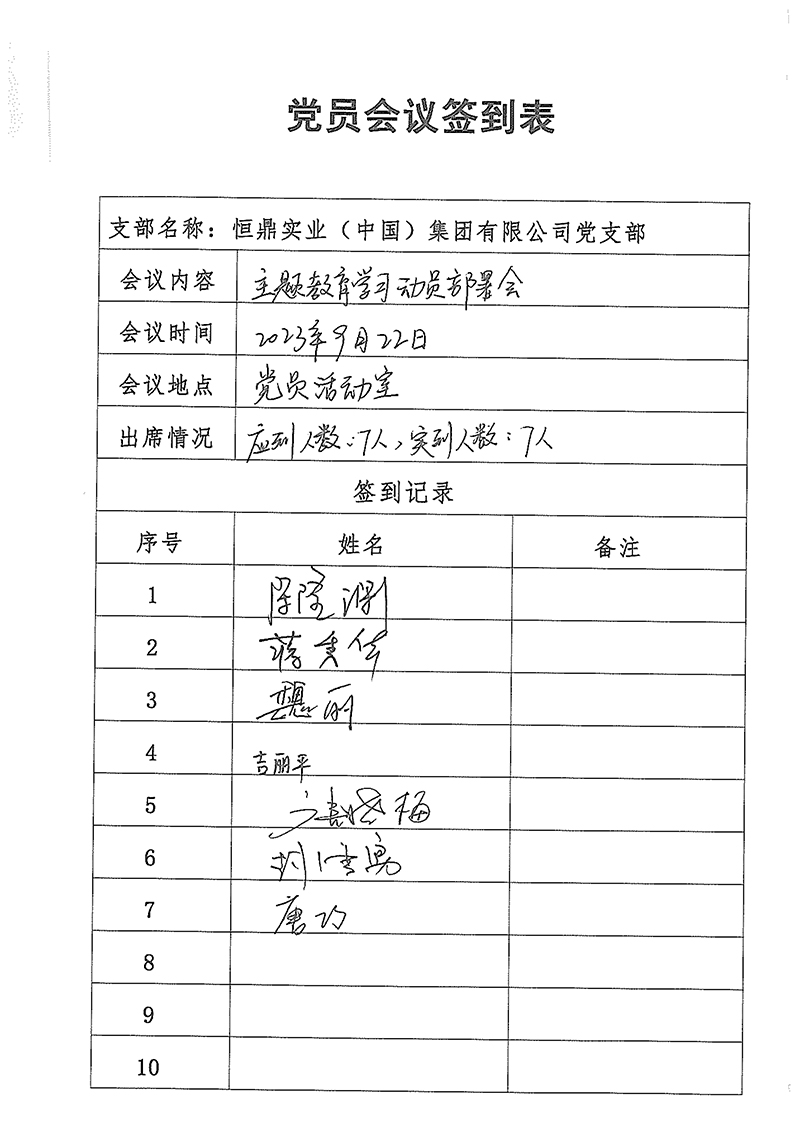 党员会议签到表
支部名称：恒鼎实业（中国）集团有限公司党支部
会议内容 主题教育学习动员部署会
会议时间 2023年9月22日
会议地点 党员活动室
出席情况 应到人数：7人，实到人数：7人
签到记录
序号 姓名 备注
1
2
3
4 吉丽平
5
6
7 唐巧
8
9
10